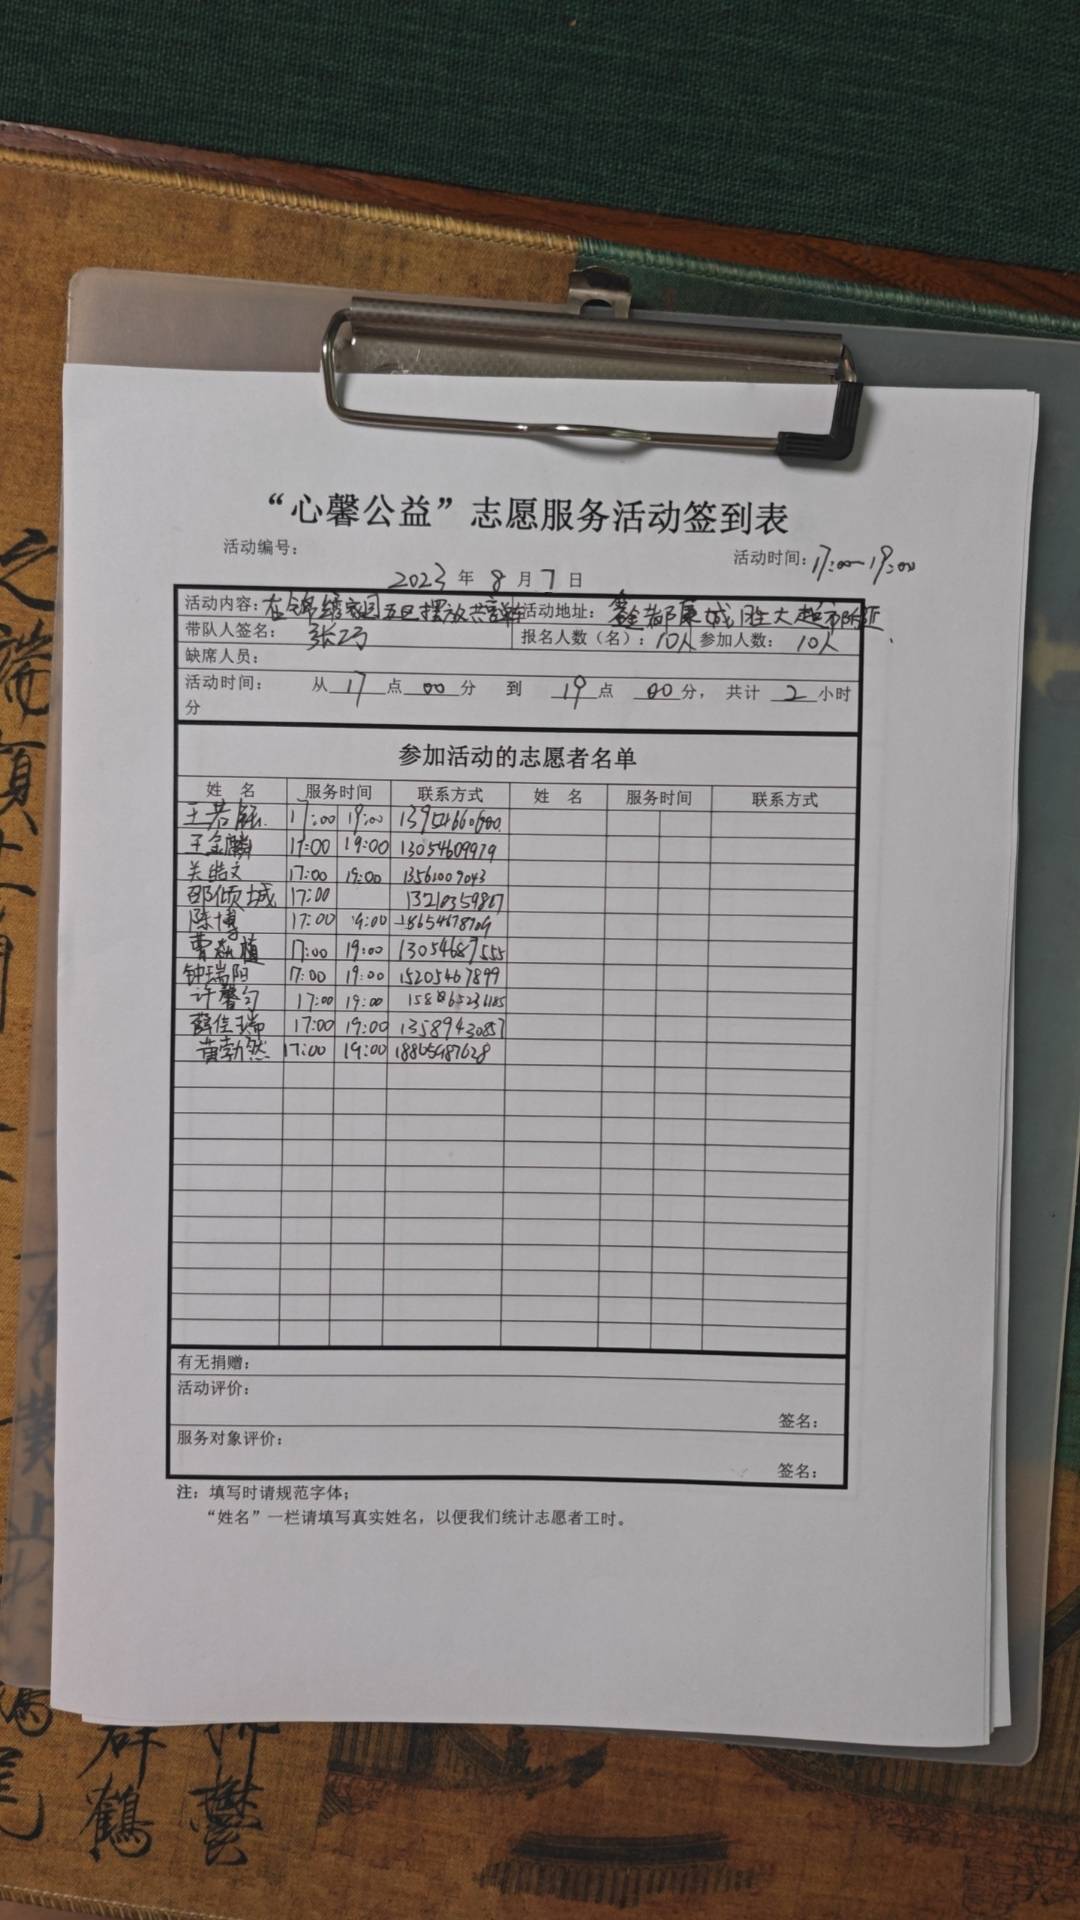 “心馨公益”志愿服务活动签到表
活动编号： 活动时间：17:00-19:00
2023 年 8 月 7 日
活动内容：在锦绣家园五区摆放共享单车 活动地址： 都康城胜大超市附近
带队人签名：张巧 报名人数（名）：10人 参加人数：10人
缺席人员：
活动时间： 从 17 点 00 分 到 19 点 00 分， 共计 2 小时
分
参加活动的志愿者名单
姓 名 服务时间 联系方式 姓 名 服务时间 联系方式
王若 17:00 19:00
王金麟 17:00 19:00 13054609979
关皓文 17:00 19:00 13561009043
邵倾城 17:00 13210359807
陈博 17:00 19:00
曹 植 17:00 19:00 13054687555
钟瑞阳 17:00 19:00 15205467899
许馨匀 17:00 19:00
薛佳瑞 17:00 19:00 13589430857
黄勃然 17:00 19:00
有无捐赠：
活动评价：
签名：
服务对象评价：
签名：
注：填写时请规范字体；
“姓名”一栏请填写真实姓名，以便我们统计志愿者工时。
之
端
群
鹤